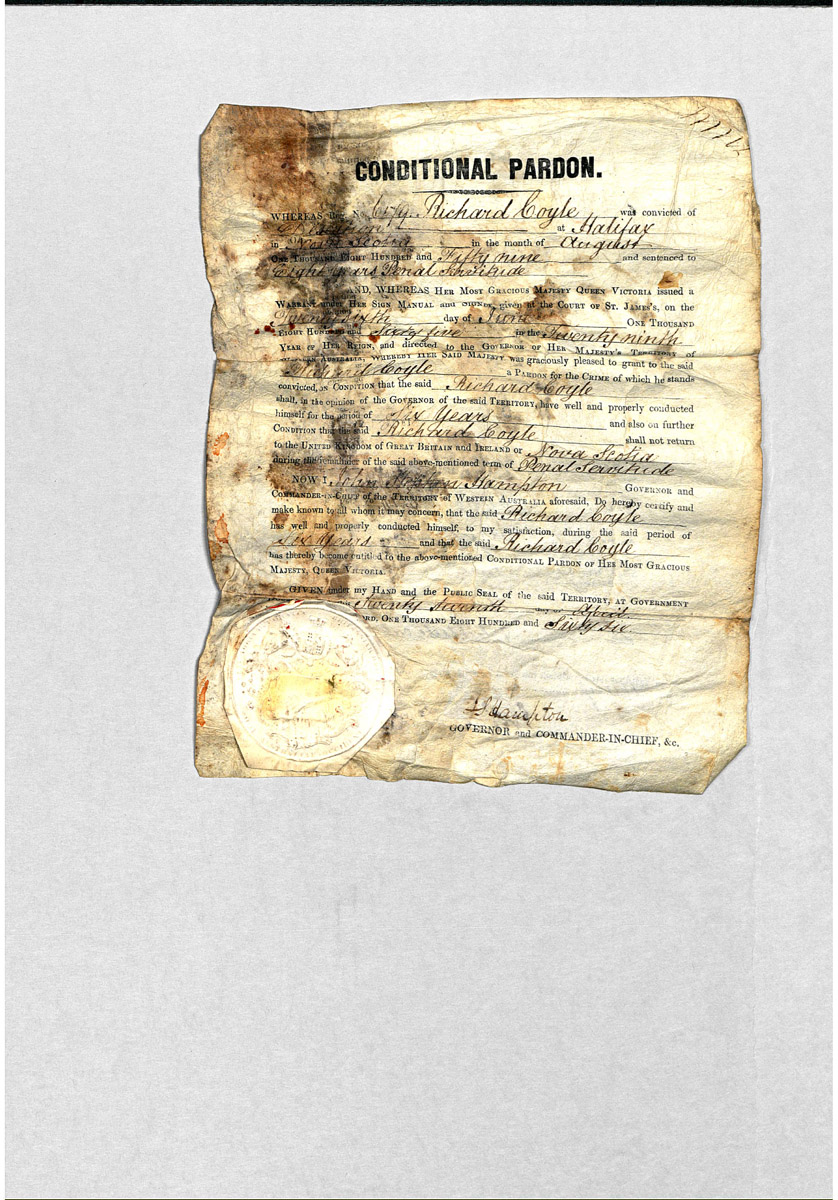 CONDITIONAL PARDON.
WHEREAS Reg. No. Richard Coyle was convicted of
Desertion at Halifax
in Nova Scotia in the month of August
One Thousand Eight Hundred and Fifty nine and sentenced to
Eight Years Penal Servitude
AND, WHEREAS Her Most Gracious Majesty Queen Victoria issued a
Warrant under Her Sign Manual and Signet, given at the Court of St. James's, on the
Twenty sixth day of June One Thousand
Eight Hundred and Sixty five in the Twenty ninth
Year of Her Reign, and directed to the Governor of Her Majesty's Territory of
Western Australia, whereby Her Said Majesty was graciously pleased to grant to the said
Richard Coyle a Pardon for the Crime of which he stands
convicted, on Condition that the said Richard Coyle
shall, in the opinion of the Governor of the said Territory, have well and properly conducted
himself for the period of Six Years and also on further
Condition that the said Richard Coyle shall not return
to the United Kingdom of Great Britain and Ireland or Nova Scotia
during the remainder of the said above-mentioned term of Penal Servitude
NOW I, John Stephen Hampton Governor and
Commander-in-Chief of the Territory of Western Australia aforesaid, Do hereby certify and
make known to all whom it may concern, that the said Richard Coyle
has well and properly conducted himself, to my satisfaction, during the said period of
Six Years and that the said Richard Coyle
has thereby become entitled to the above-mentioned Conditional Pardon of Her Most Gracious
Majesty, Queen Victoria.
GIVEN under my Hand and the Public Seal of the said Territory, at Government
Twenty seventh day of April
One Thousand Eight Hundred and Sixty six.
JSHampton
GOVERNOR and COMMANDER-IN-CHIEF, &c.